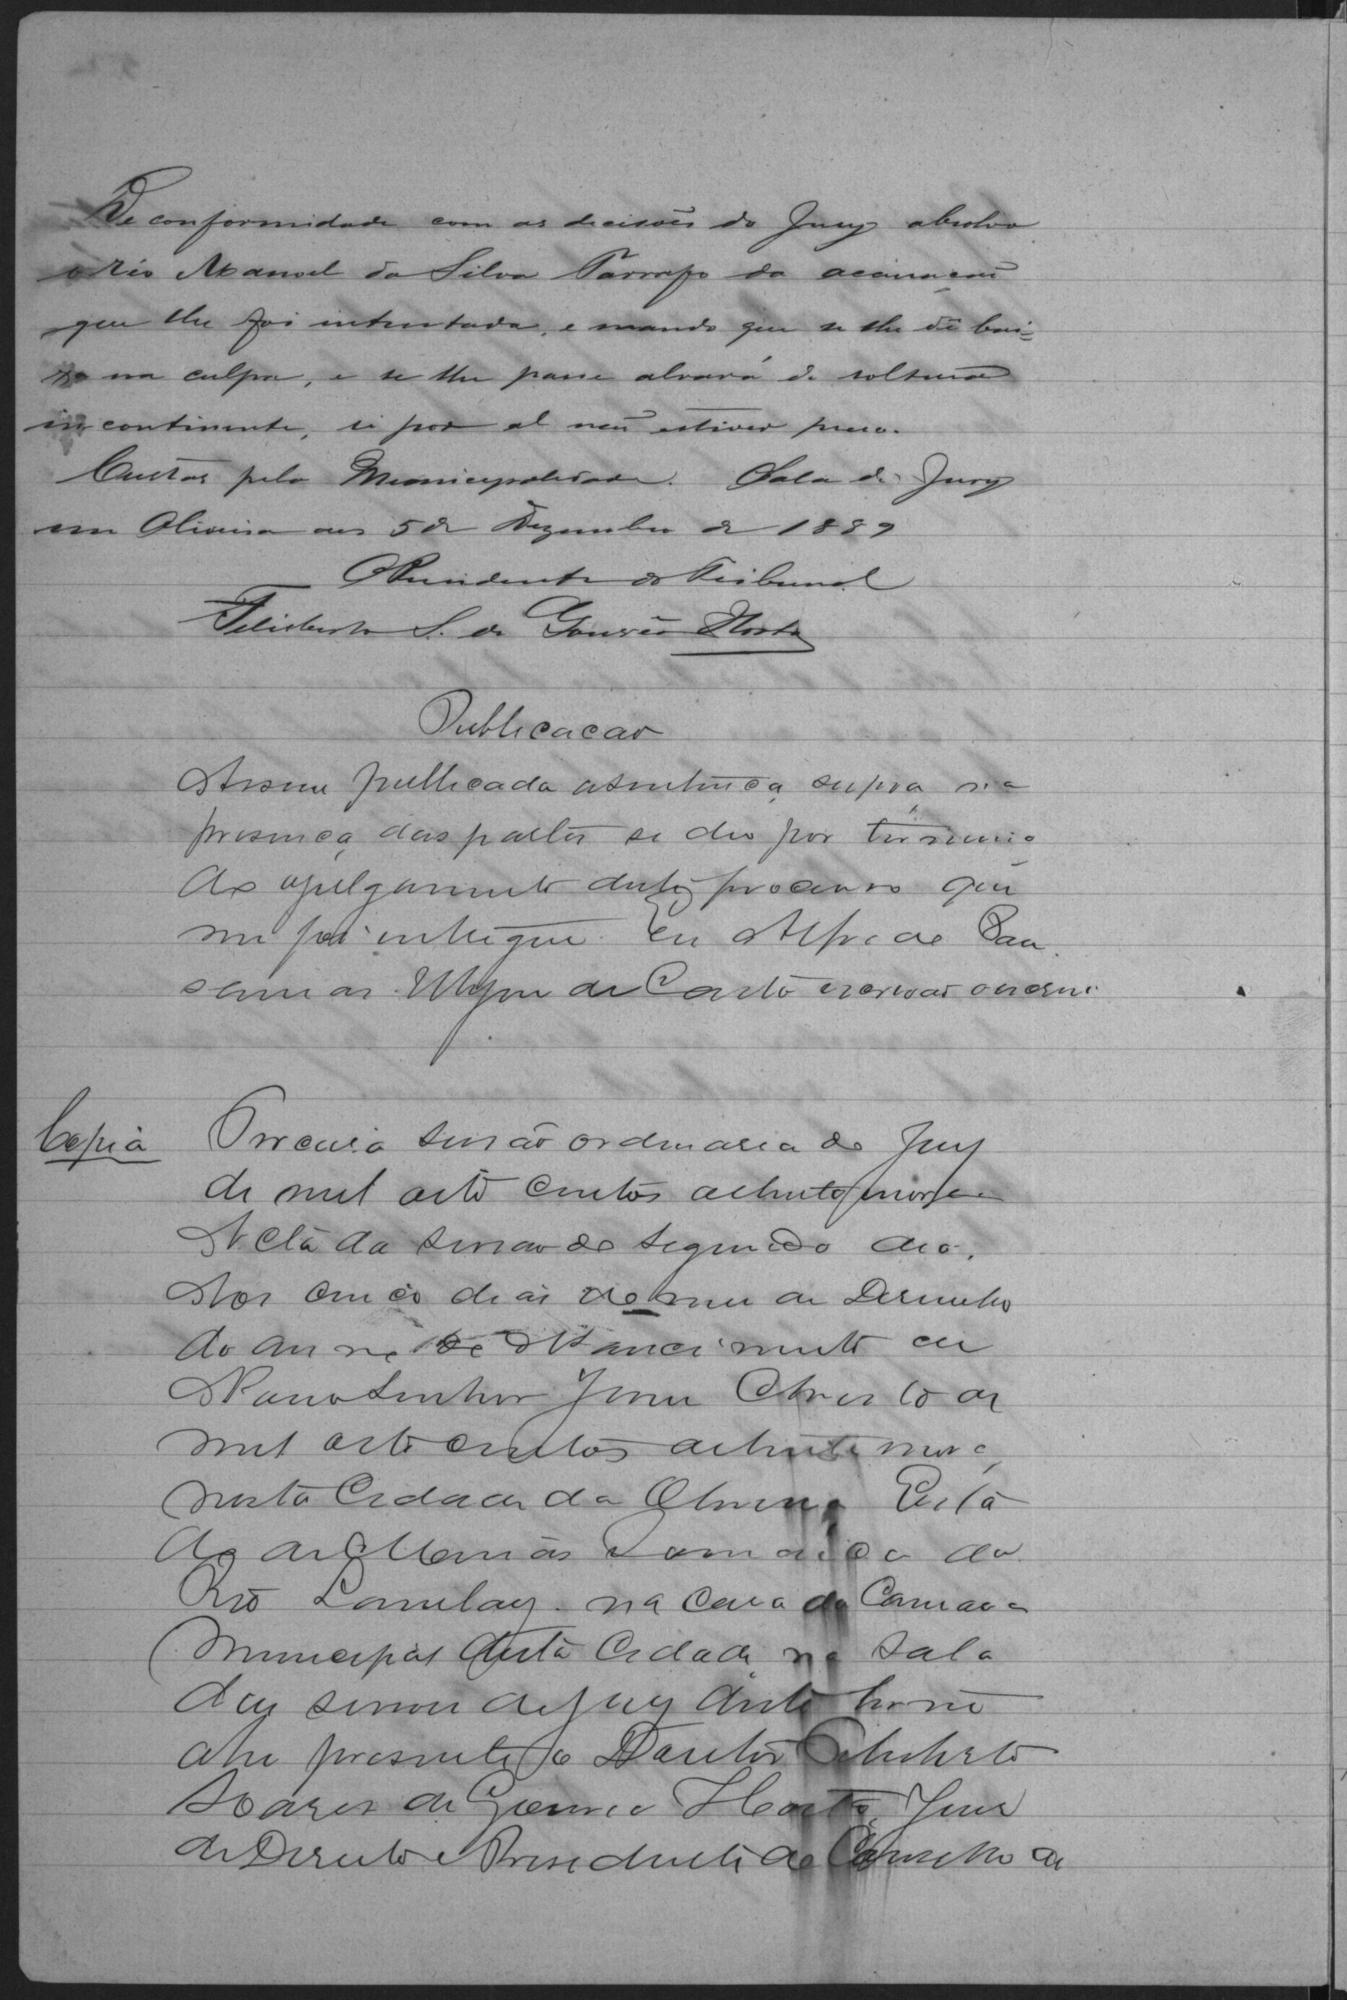 De conformidade com as decisões do Jury absolvo
o réo Manoel da Silva Farrapo da accusação
que lhe foi intentada, e mando que se lhe dê bai=
xa na culpa, e se lhe passe alvará de soltura
incontinente, si por al não estiver preso.
Custas pela Municipalidade. Sala do Jury
em Oliveira aos 5 de Dezembro de 1889
O Presidente do Tribunal
Felisberto S. de Gouvêa Horta
Publicacao
E assim publicada a sentença supra na
presença das partes se deu por termino
do o julgamento deste processo que
me foi entregue. Eu Alfredo
de Castro escrivão o escrevi
Copia
Terceira sessão ordinaria do Jury
de mil oito centos oitenta nove
Acta da sessão do segundo dia.
Aos cinco dias do mez de Dezembro
do anno de Nascimento de
Nosso Senhor Jesus Christo de
mil oito centos oitenta nove,
nesta Cidade da Oliveira Esta
do de Minas Comarca do
Rio Lambary na casa da Camara
Municipal desta Cidade na sala
das sessões de Jury deste termo
ahi presente o Doutor Felisberto
Soares de Gouvea Horta, Juiz
de Direito e Presidente do Conselho de